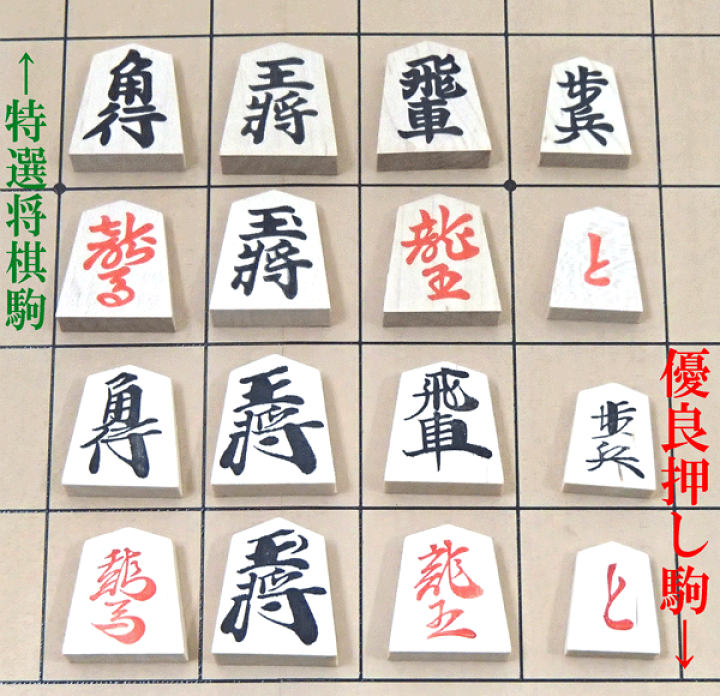 ↑特選将棋駒
角行 王将 飛車 歩兵
龍馬 玉将 龍王 と
角行 王将 飛車 歩兵
龍馬 玉将 龍王 と
優良押し駒↓